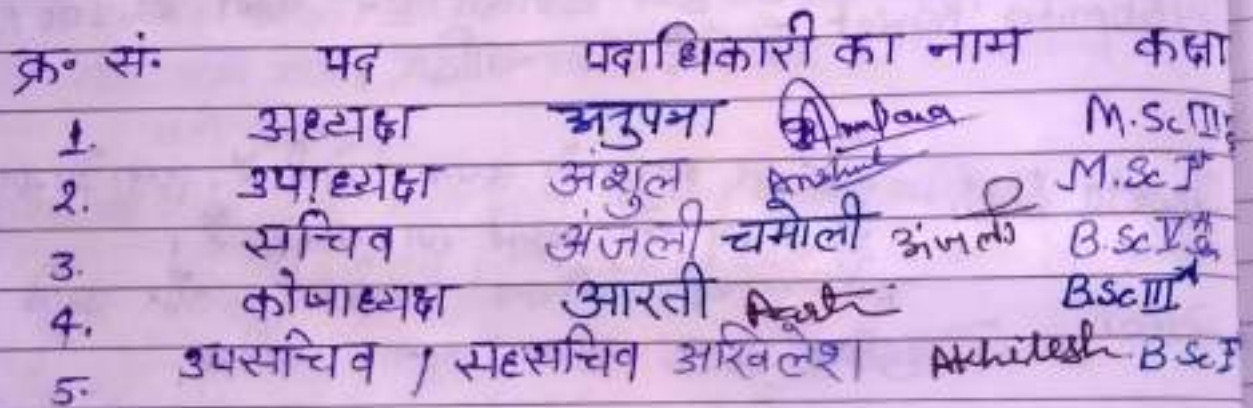 क्र॰ सं॰ पद पदाधिकारी का नाम कक्षा
1. अध्यक्ष अनुपमा M.Sc III
2. उपाध्यक्ष अंशुल Anshul M.Sc I
3. सचिव अंजली चमोली अंजली B.Sc V
4. कोषाध्यक्ष आरती Aarti B.Sc III
5. उपसचिव / सहसचिव अखिलेश Akhilesh B.Sc I